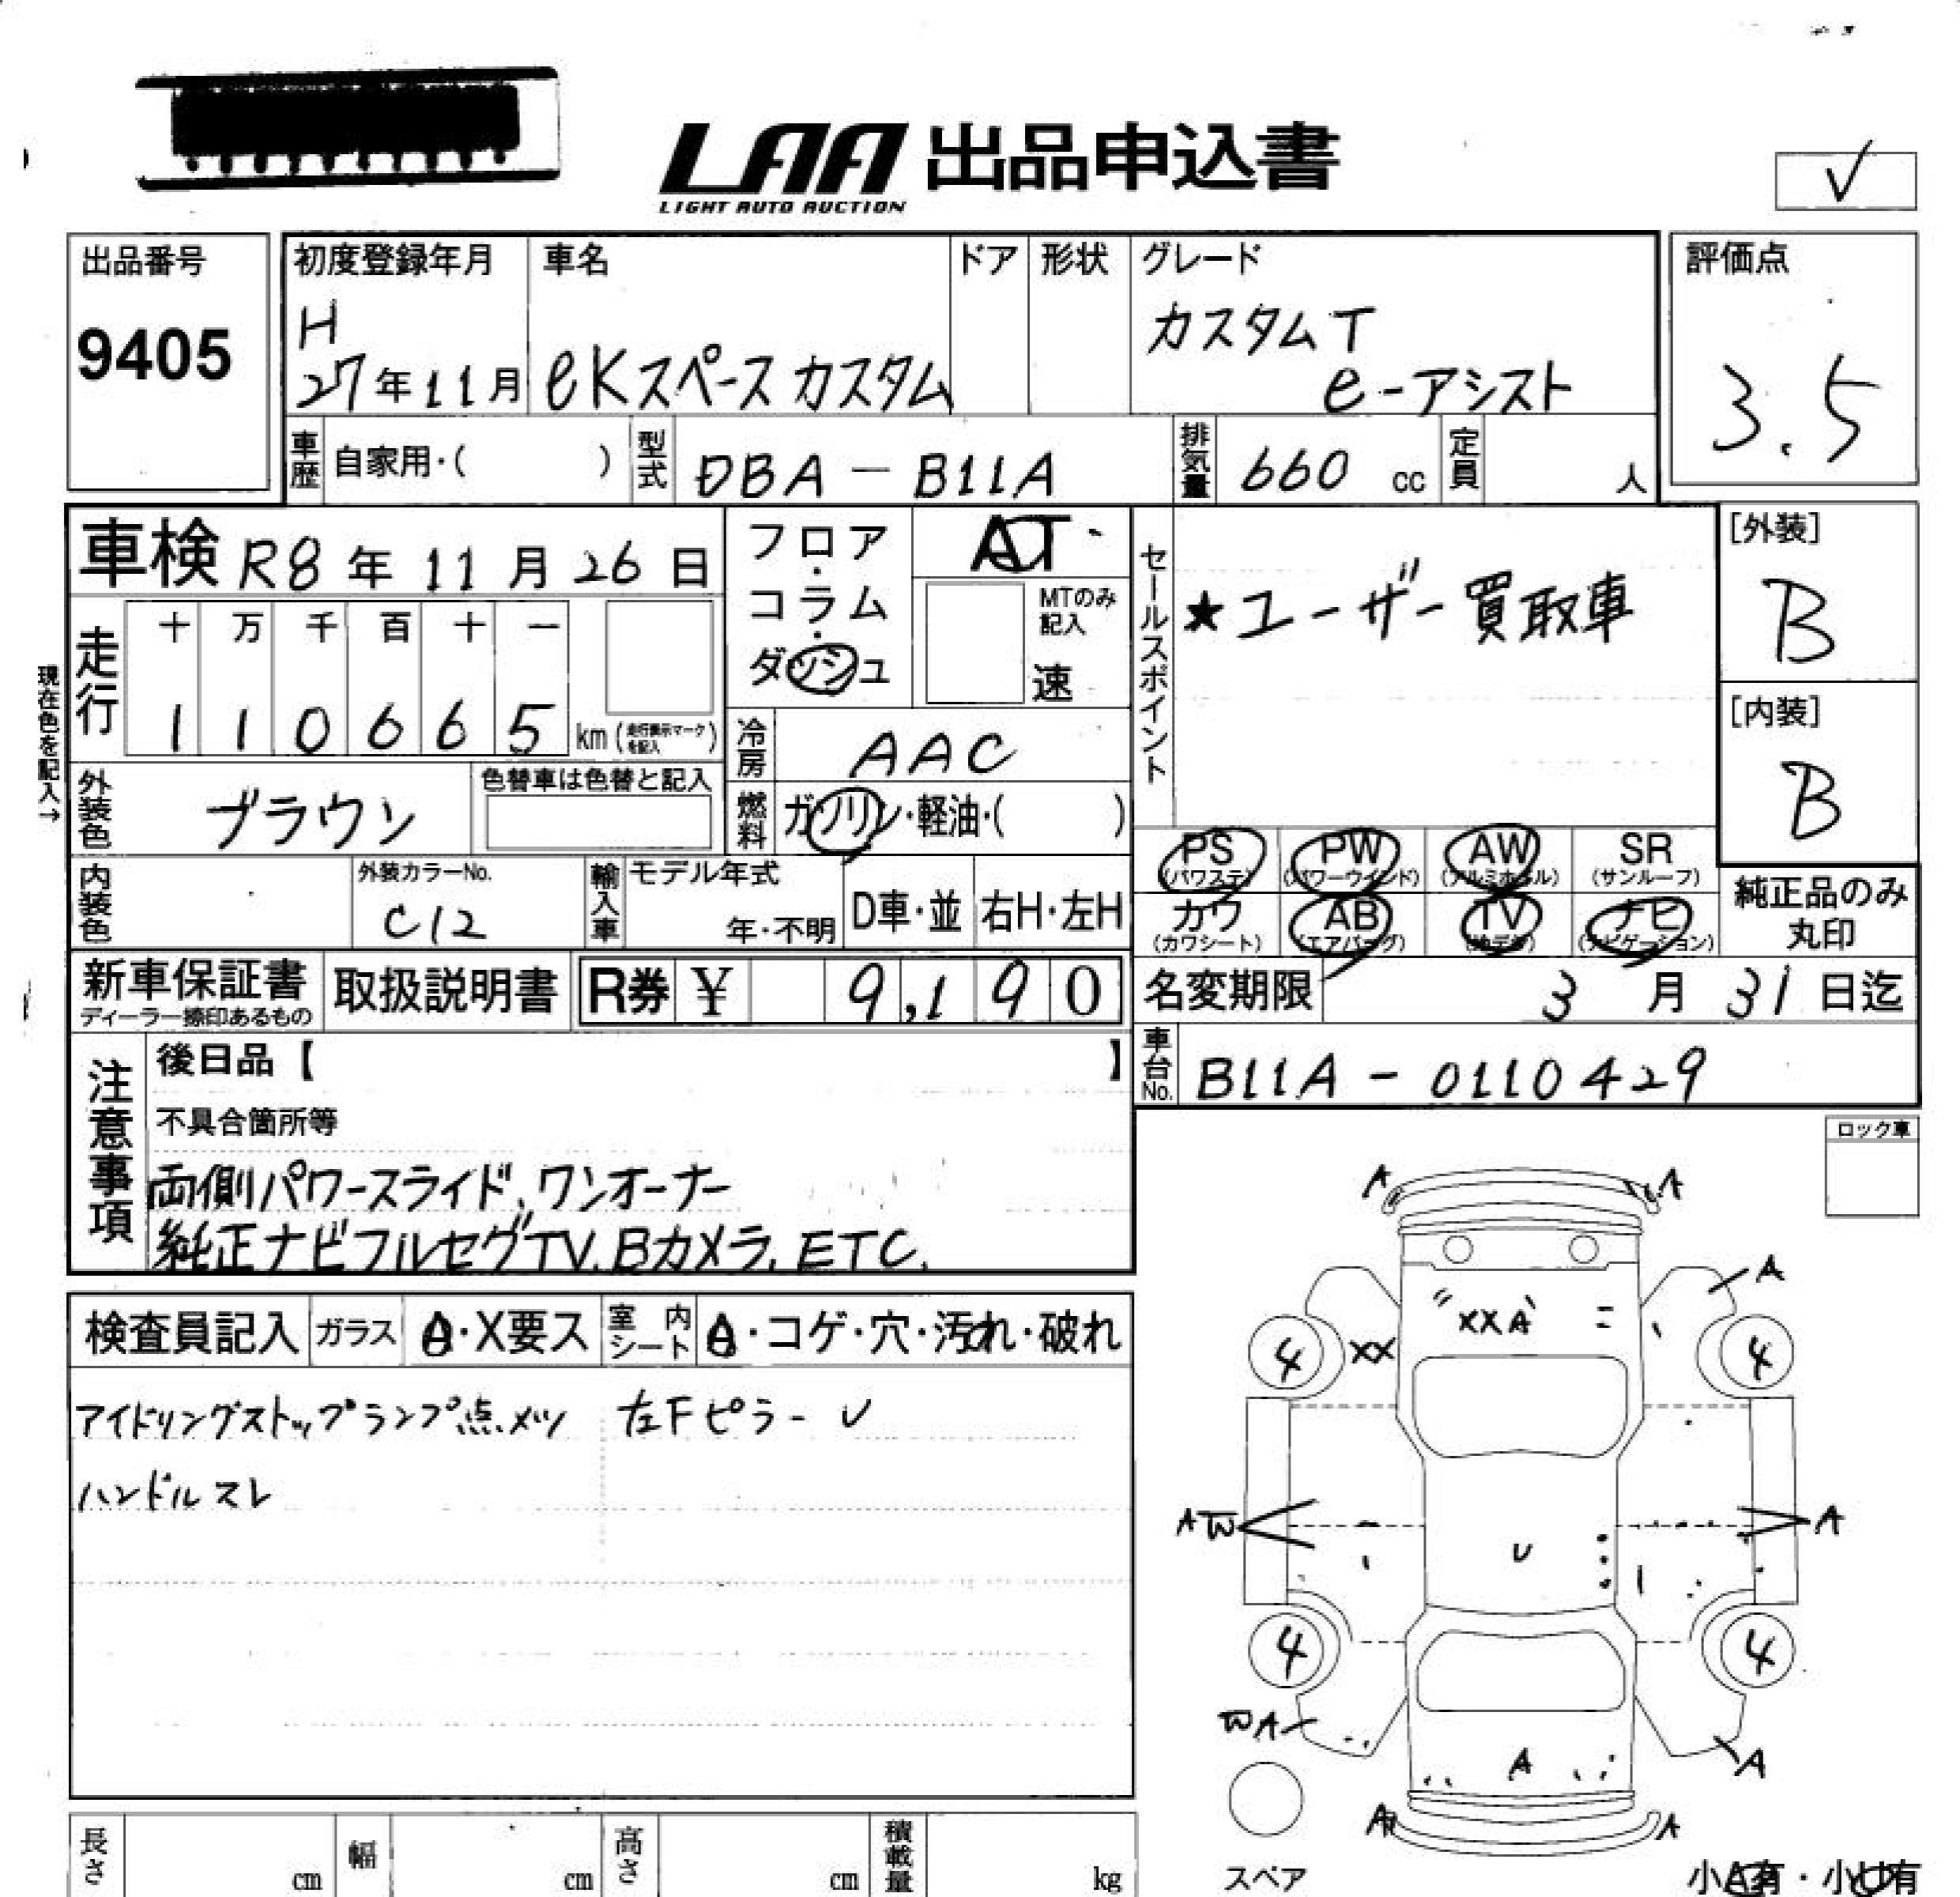 LAA 出品申込書
LIGHT AUTO AUCTION
✓
出品番号
9405
初度登録年月
H
27年11月
車名
eKスペース カスタム
ドア
形状
グレード
カスタムT
e-アシスト
評価点
3.5
車歴 自家用・( )
型式 DBA - B11A
排気量 660 cc
定員 人
車検 R8年11月26日
フロア・コラム・ダッシュ
AT
MTのみ記入
速
現在色を記入→
走行
十 万 千 百 十 一
1 1 0 6 6 5 km (走行表示マークを記入)
冷房 AAC
燃料 ガソリン・軽油・( )
セールスポイント
★ユーザー買取車
[外装]
B
[内装]
B
外装色 ブラウン
色替車は色替と記入
内装色
外装カラーNo.
C12
輸入車
モデル年式
年・不明
D車・並
右H・左H
PS (パワステ)
PW (パワーウインド)
AW (アルミホイル)
SR (サンルーフ)
カワ (カワシート)
AB (エアバッグ)
TV (地デジ)
ナビ (ナビゲーション)
純正品のみ
丸印
新車保証書
ディーラー捺印あるもの
取扱説明書
R券 ¥ 9,190
名変期限 3月31日迄
車台No. B11A - 0110429
注意事項
後日品【 】
不具合箇所等
両側パワースライド、ワンオーナー
純正ナビフルセグTV.Bカメラ.ETC.
ロック車
検査員記入
ガラス A・X要ス
室内シート A・コゲ・穴・汚れ・破れ
アイドリングストップランプ点メツ 左Fピラー U
ハンドルスレ
A A
A
XXA
4 XX 4
AW U A
4 4
WA A A
A A
スペア
小A有・小U有
長さ cm
幅 cm
高さ cm
積載量 kg